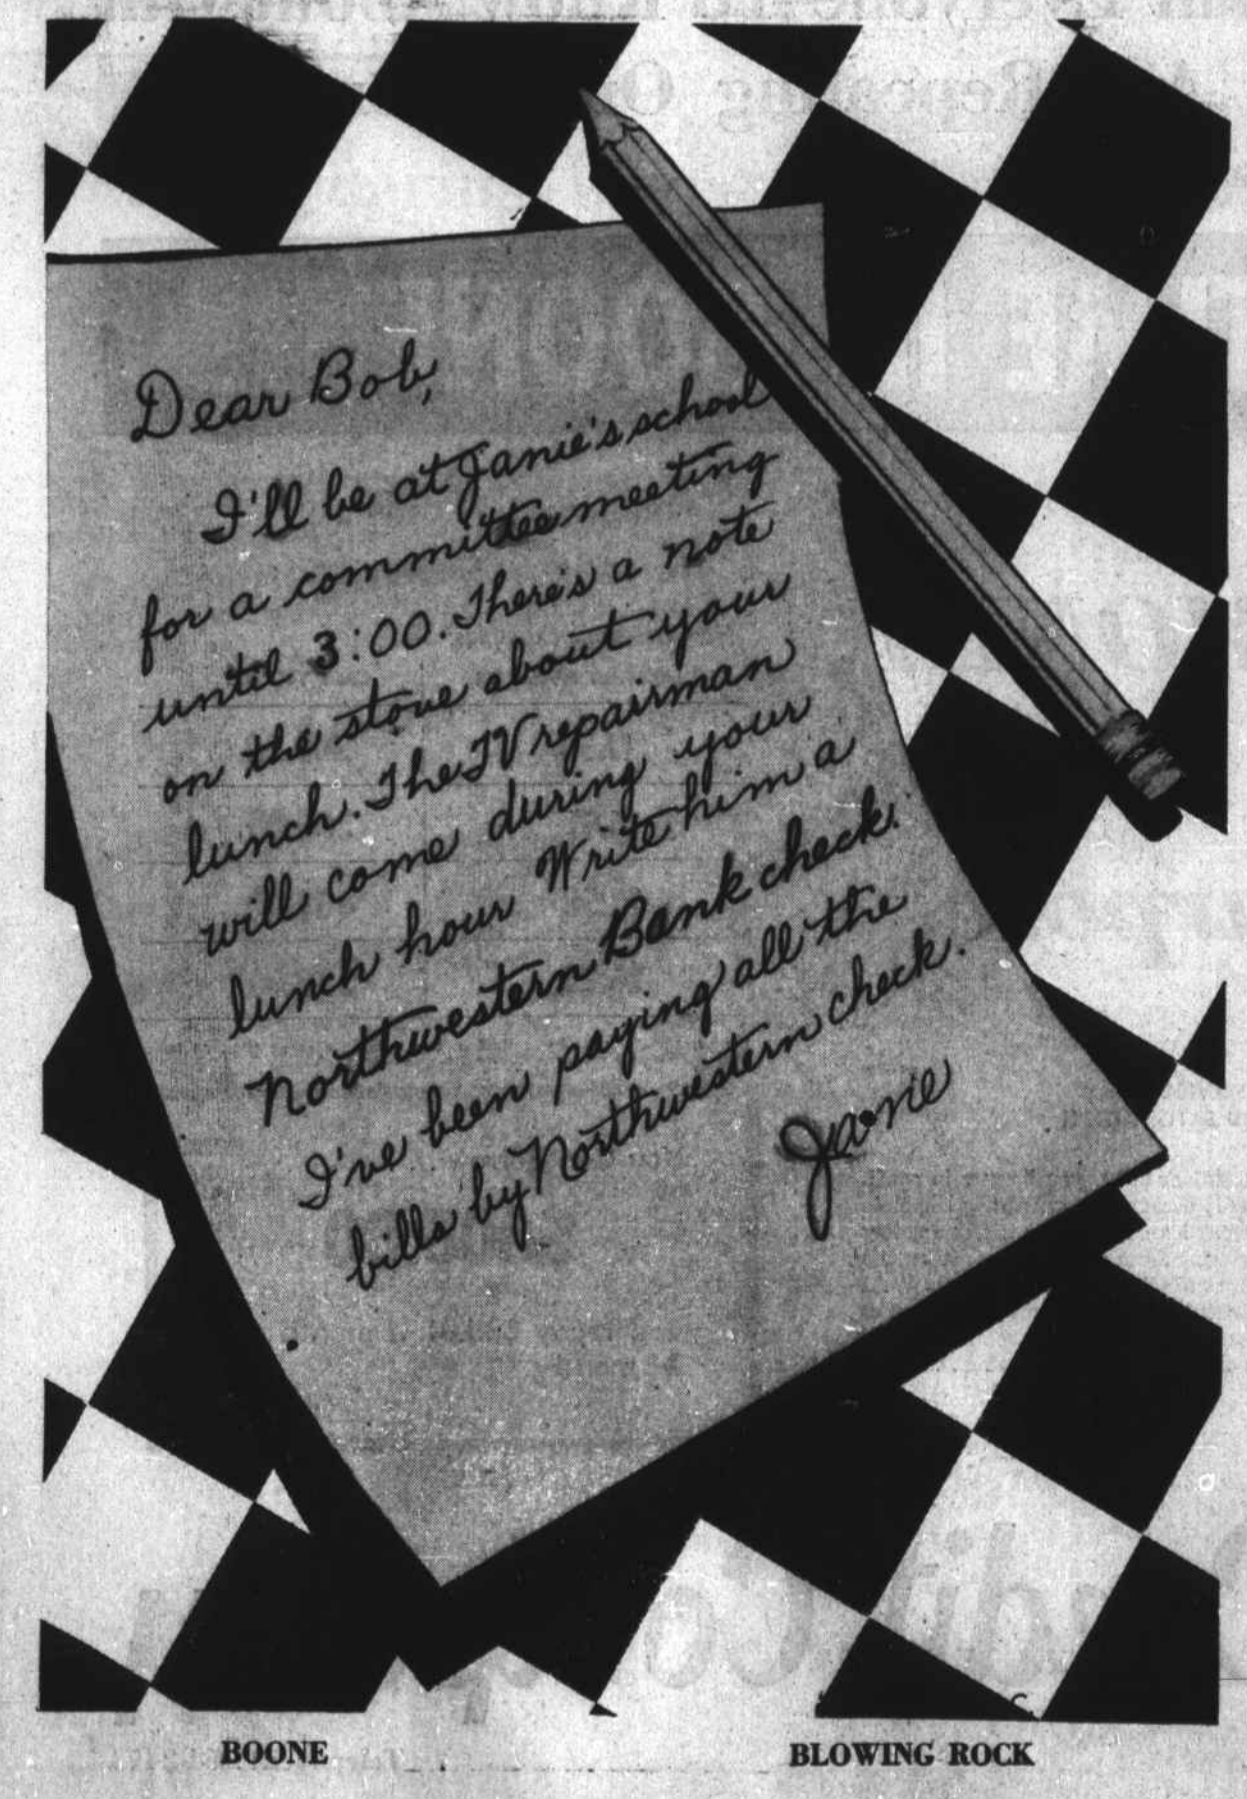 Dear Bob,
I'll be at Janie's school
for a committee meeting
until 3:00. There's a note
on the stove about your
lunch. The TV repairman
will come during your
lunch hour Write him a
Northwestern Bank check.
I've been paying all the
bills by Northwestern check.
Janie
BOONE BLOWING ROCK